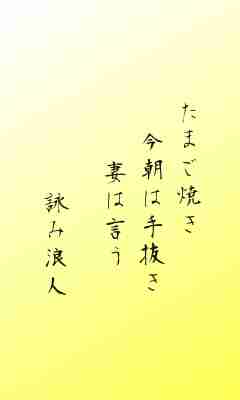 たまご焼き
今朝は手抜き
妻は言う
詠み浪人